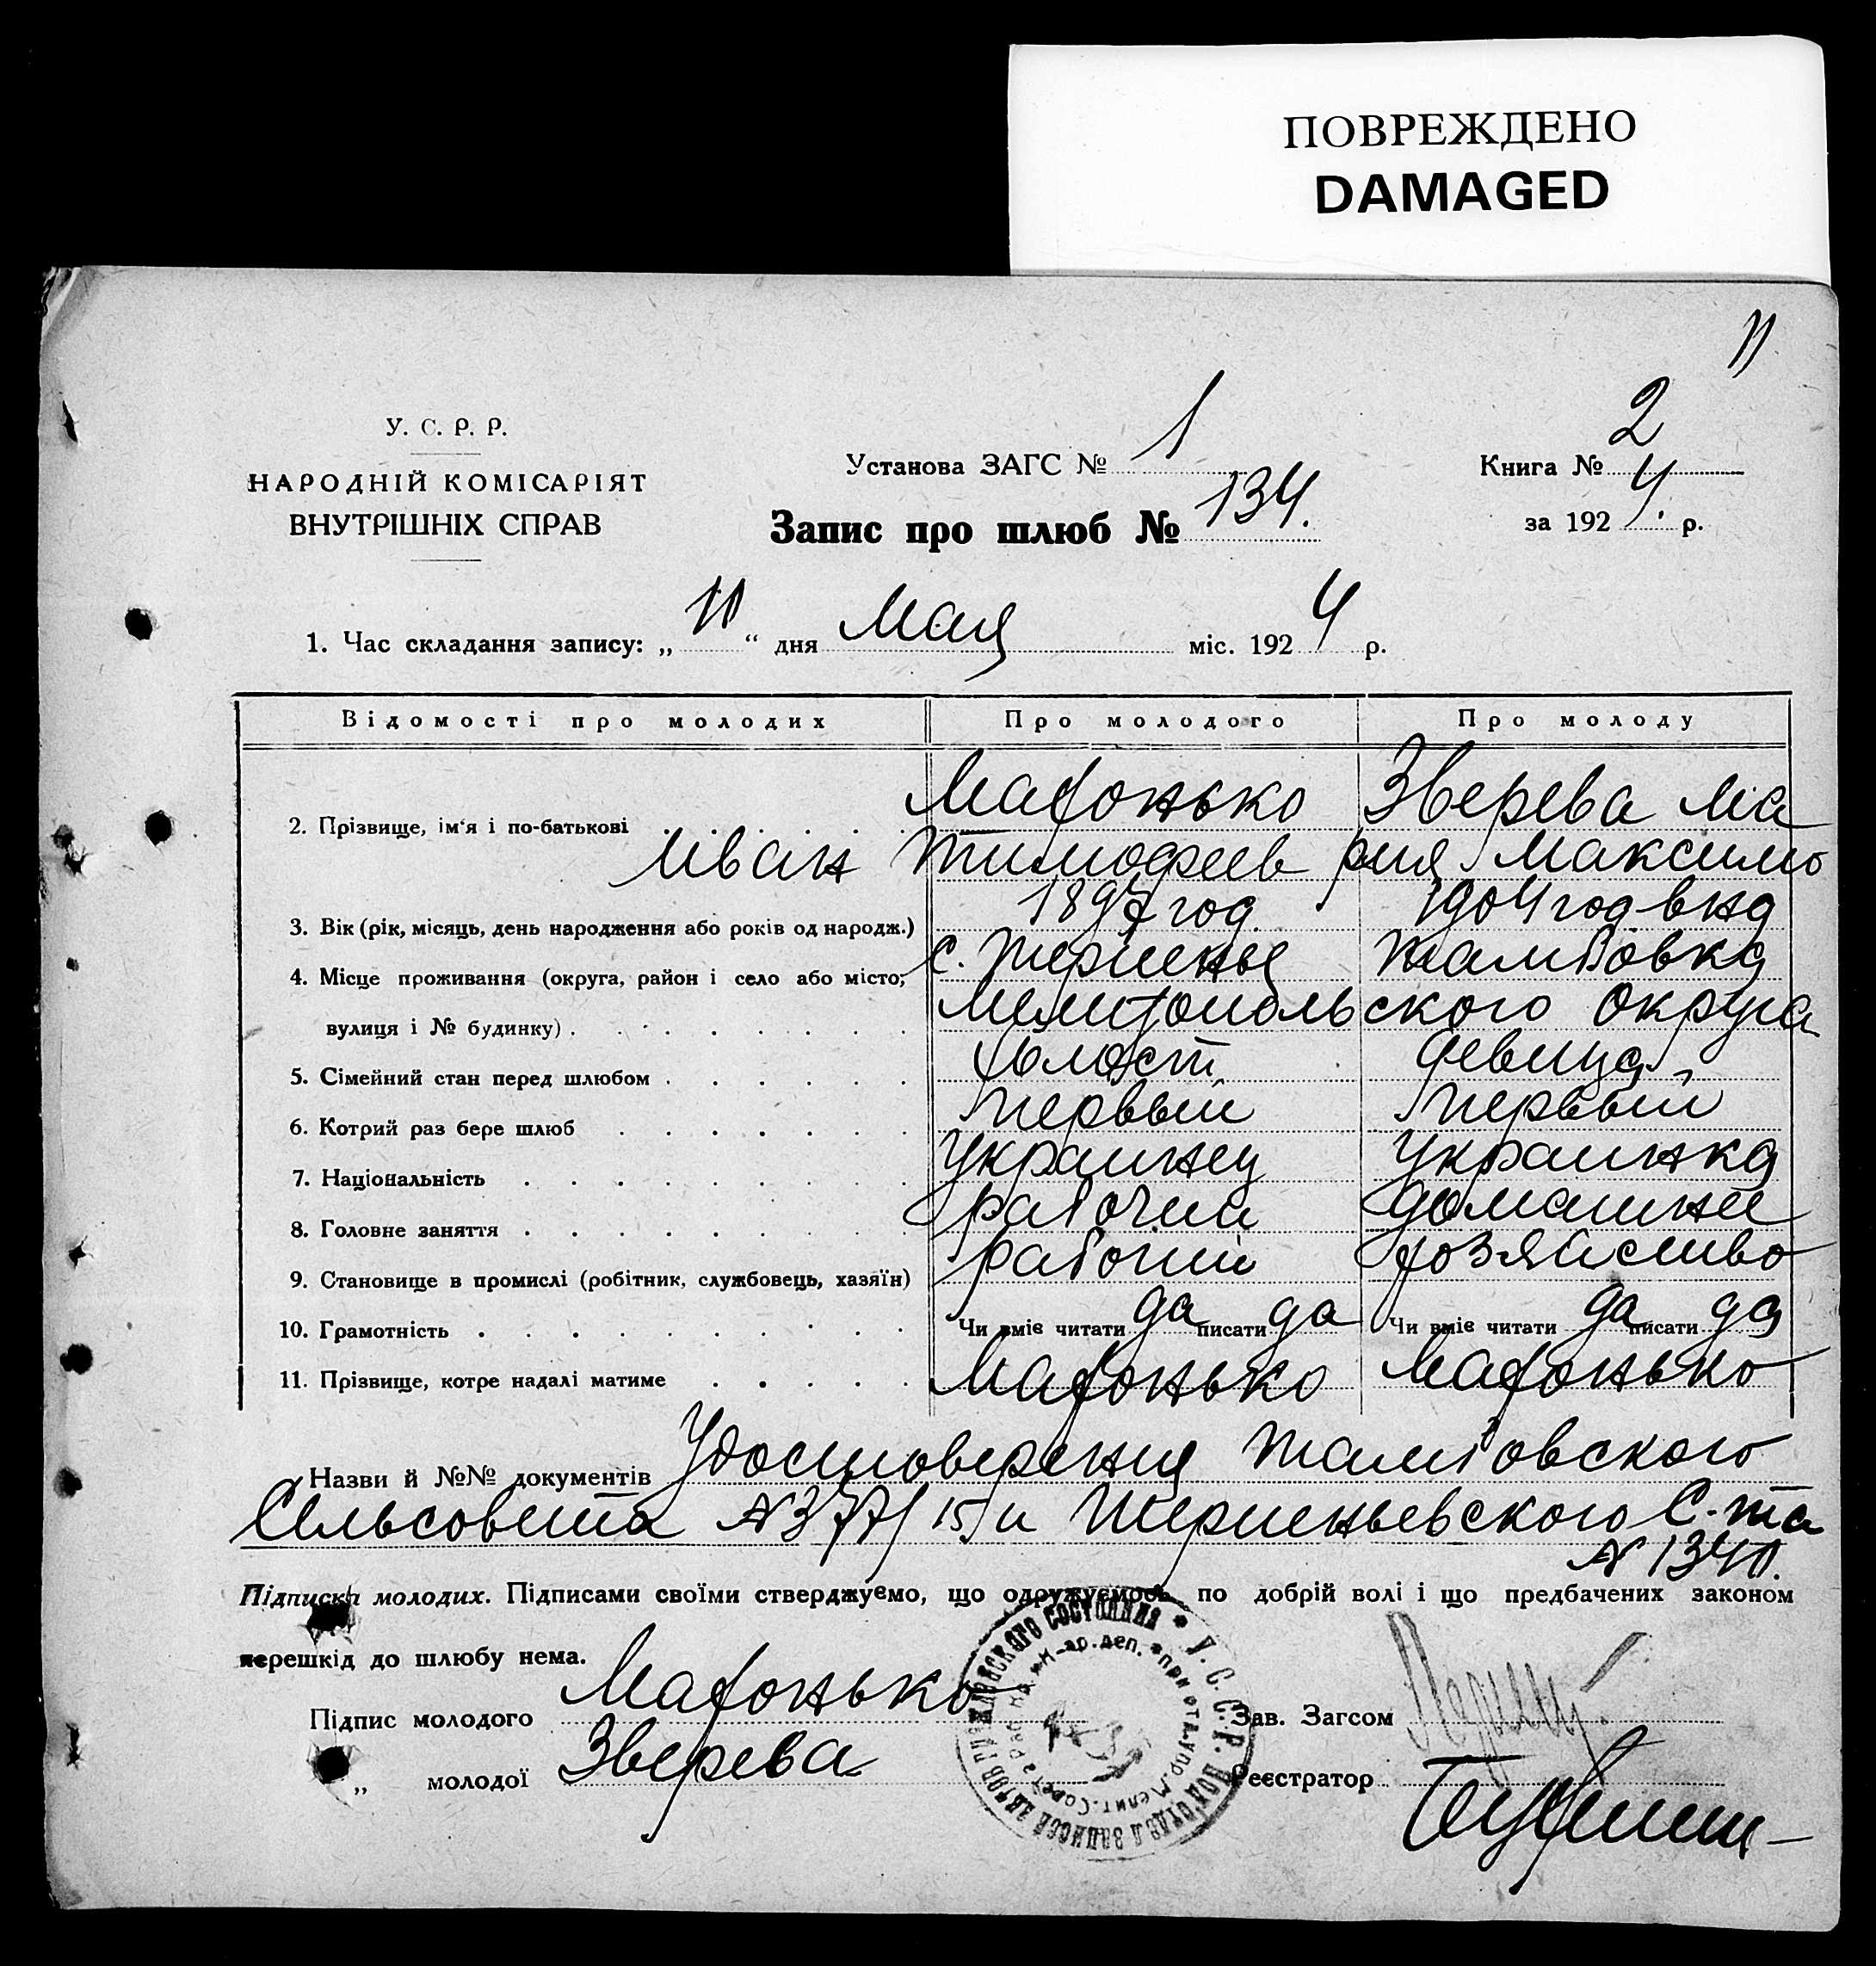 ПОВРЕЖДЕНО
DAMAGED
11
У. С. Р. Р.
НАРОДНІЙ КОМІСАРІЯТ
ВНУТРІШНІХ СПРАВ
Установа ЗАГС № 1
Запис про шлюб № 134.
Книга № 2
за 1924. р.
1. Час складання запису: „ “ дня Мая міс. 1924 р.
Відомості про молодих Про молодого Про молоду
2. Прізвище, ім‘я і по-батькові Махонько Зверева Ма
Иван Тимофеев рия Максимо
3. Вік (рік, місяць, день народження або років од народж.) 1897 год. 1904 год вна
4. Місце проживання (округа, район і село або місто; с. Терпенье Тамбовка
вулиця і № будинку) Мелитопольского Округа
5. Сімейний стан перед шлюбом холост девица
6. Котрий раз бере шлюб Первый Первый
7. Національність Украинец Украинка
8. Головне заняття рабочий домашнее
9. Становище в промислі (робітник, службовець, хазяїн) рабочий хозяйство
10. Грамотність Чи вміє читати да писати да Чи вміє читати да писати да
11. Прізвище, котре надалі матиме Махонько Махонько
Назви й №№ документів Удостоверения Тамбовского
Сельсовета № и Терпеньевского С-та
№ 1340.
Підписка молодих. Підписами своїми стверджуємо, що одружуємось по добрій волі і що предбачених законом
перешкід до шлюбу нема.
Підпис молодого Махонько
„ молодої Зверева
Зав. Загсом
Реєстратор
У. С. С. Р. ПОДОТДЕЛ ЗАПИСЕЙ АКТОВ ГРАЖДАНСКОГО СОСТОЯНИЯ